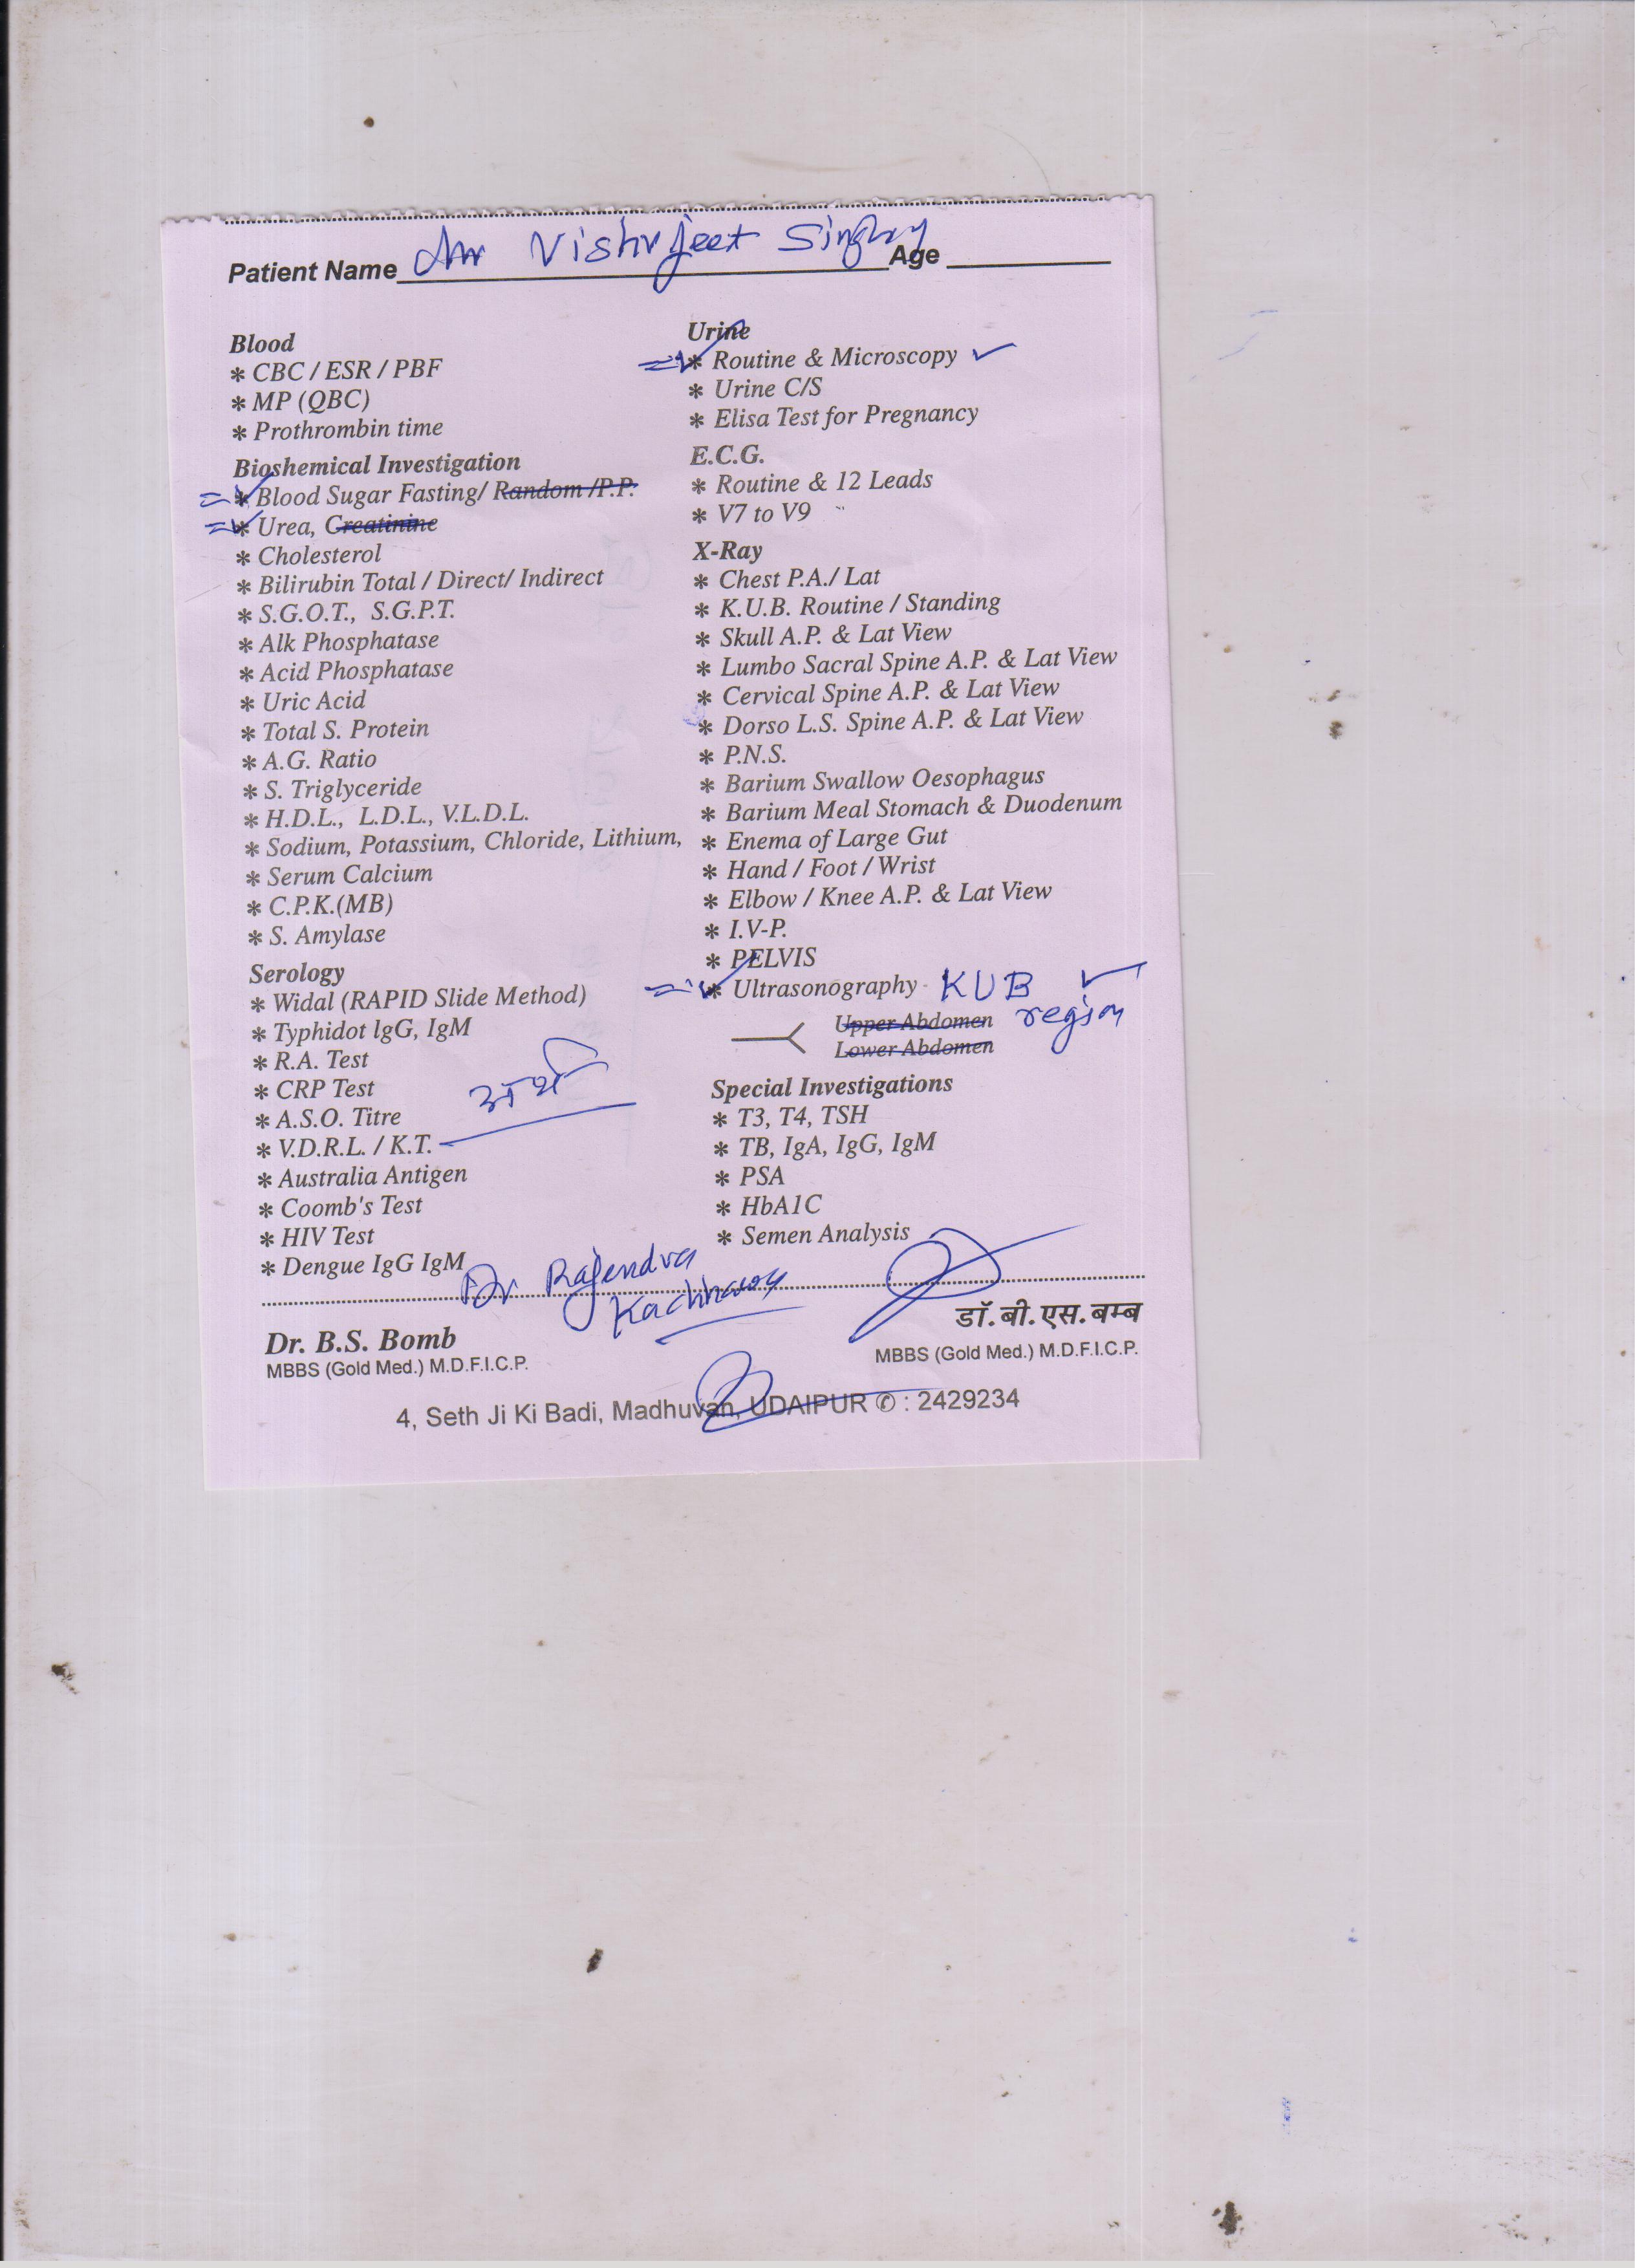 Patient Name Mr Vishvjeet Singhvy Age
Blood
* CBC / ESR / PBF
* MP (QBC)
* Prothrombin time
Bioshemical Investigation
* Blood Sugar Fasting/ Random /P.P.
* Urea, Creatinine
* Cholesterol
* Bilirubin Total / Direct/ Indirect
* S.G.O.T., S.G.P.T.
* Alk Phosphatase
* Acid Phosphatase
* Uric Acid
* Total S. Protein
* A.G. Ratio
* S. Triglyceride
* H.D.L., L.D.L., V.L.D.L.
* Sodium, Potassium, Chloride, Lithium,
* Serum Calcium
* C.P.K.(MB)
* S. Amylase
Serology
* Widal (RAPID Slide Method)
* Typhidot lgG, IgM
* R.A. Test
* CRP Test
* A.S.O. Titre
* V.D.R.L. / K.T.
* Australia Antigen
* Coomb's Test
* HIV Test
* Dengue IgG IgM
Urine
* Routine & Microscopy
* Urine C/S
* Elisa Test for Pregnancy
E.C.G.
* Routine & 12 Leads
* V7 to V9
X-Ray
* Chest P.A./ Lat
* K.U.B. Routine / Standing
* Skull A.P. & Lat View
* Lumbo Sacral Spine A.P. & Lat View
* Cervical Spine A.P. & Lat View
* Dorso L.S. Spine A.P. & Lat View
* P.N.S.
* Barium Swallow Oesophagus
* Barium Meal Stomach & Duodenum
* Enema of Large Gut
* Hand / Foot / Wrist
* Elbow / Knee A.P. & Lat View
* I.V-P.
* PELVIS
* Ultrasonography - KUB
region
Upper Abdomen
Lower Abdomen
Special Investigations
* T3, T4, TSH
* TB, IgA, IgG, IgM
* PSA
* HbA1C
* Semen Analysis
Dr Rajendra
Kachhawa
Dr. B.S. Bomb
MBBS (Gold Med.) M.D.F.I.C.P.
डॉ. बी. एस. बम्ब
MBBS (Gold Med.) M.D.F.I.C.P.
4, Seth Ji Ki Badi, Madhuvan, UDAIPUR ✆ : 2429234